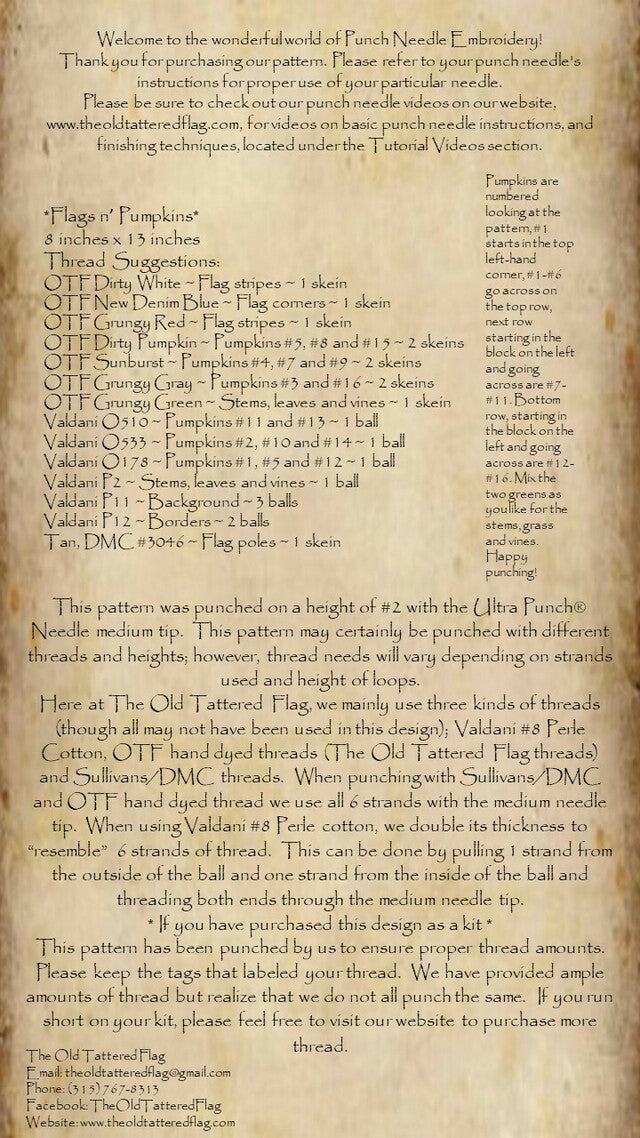 Welcome to the wonderful world of Punch Needle Embroidery!
Thank you for purchasing our pattern. Please refer to your punch needle's
instructions for proper use of your particular needle.
Please be sure to check out our punch needle videos on our website,
www.theoldtatteredflag.com, for videos on basic punch needle instructions, and
finishing techniques, located under the Tutorial Videos section.
*Flags n' Pumpkins*
8 inches x 13 inches
Thread Suggestions:
OTF Dirty White ~ Flag stripes ~ 1 skein
OTF New Denim Blue ~ Flag corners ~ 1 skein
OTF Grungy Red ~ Flag stripes ~ 1 skein
OTF Dirty Pumpkin ~ Pumpkins #5, #8 and #15 ~ 2 skeins
OTF Sunburst ~ Pumpkins #4, #7 and #9 ~ 2 skeins
OTF Grungy Gray ~ Pumpkins #3 and #16 ~ 2 skeins
OTF Grungy Green ~ Stems, leaves and vines ~ 1 skein
Valdani O510 ~ Pumpkins #11 and #13 ~ 1 ball
Valdani O533 ~ Pumpkins #2, #10 and #14 ~ 1 ball
Valdani O178 ~ Pumpkins #1, #5 and #12 ~ 1 ball
Valdani P2 ~ Stems, leaves and vines ~ 1 ball
Valdani P11 ~ Background ~ 3 balls
Valdani P12 ~ Borders ~ 2 balls
Tan, DMC #3046 ~ Flag poles ~ 1 skein
Pumpkins are
numbered
looking at the
pattern, #1
starts in the top
left-hand
corner, #1-#6
go across on
the top row,
next row
starting in the
block on the left
and going
across are #7-
#11. Bottom
row, starting in
the block on the
left and going
across are #12-
#16. Mix the
two greens as
you like for the
stems, grass
and vines.
Happy
punching!
This pattern was punched on a height of #2 with the Ultra Punch®
Needle medium tip. This pattern may certainly be punched with different
threads and heights; however, thread needs will vary depending on strands
used and height of loops.
Here at The Old Tattered Flag, we mainly use three kinds of threads
(though all may not have been used in this design); Valdani #8 Perle
Cotton, OTF hand dyed threads (The Old Tattered Flag threads)
and Sullivans/DMC threads. When punching with Sullivans/DMC
and OTF hand dyed thread we use all 6 strands with the medium needle
tip. When using Valdani #8 Perle cotton, we double its thickness to
"resemble" 6 strands of thread. This can be done by pulling 1 strand from
the outside of the ball and one strand from the inside of the ball and
threading both ends through the medium needle tip.
* If you have purchased this design as a kit *
This pattern has been punched by us to ensure proper thread amounts.
Please keep the tags that labeled your thread. We have provided ample
amounts of thread but realize that we do not all punch the same. If you run
short on your kit, please feel free to visit our website to purchase more
thread.
The Old Tattered Flag
Email: theoldtatteredflag@gmail.com
Phone: (315) 767-8313
Facebook: TheOldTatteredFlag
Website: www.theoldtatteredflag.com